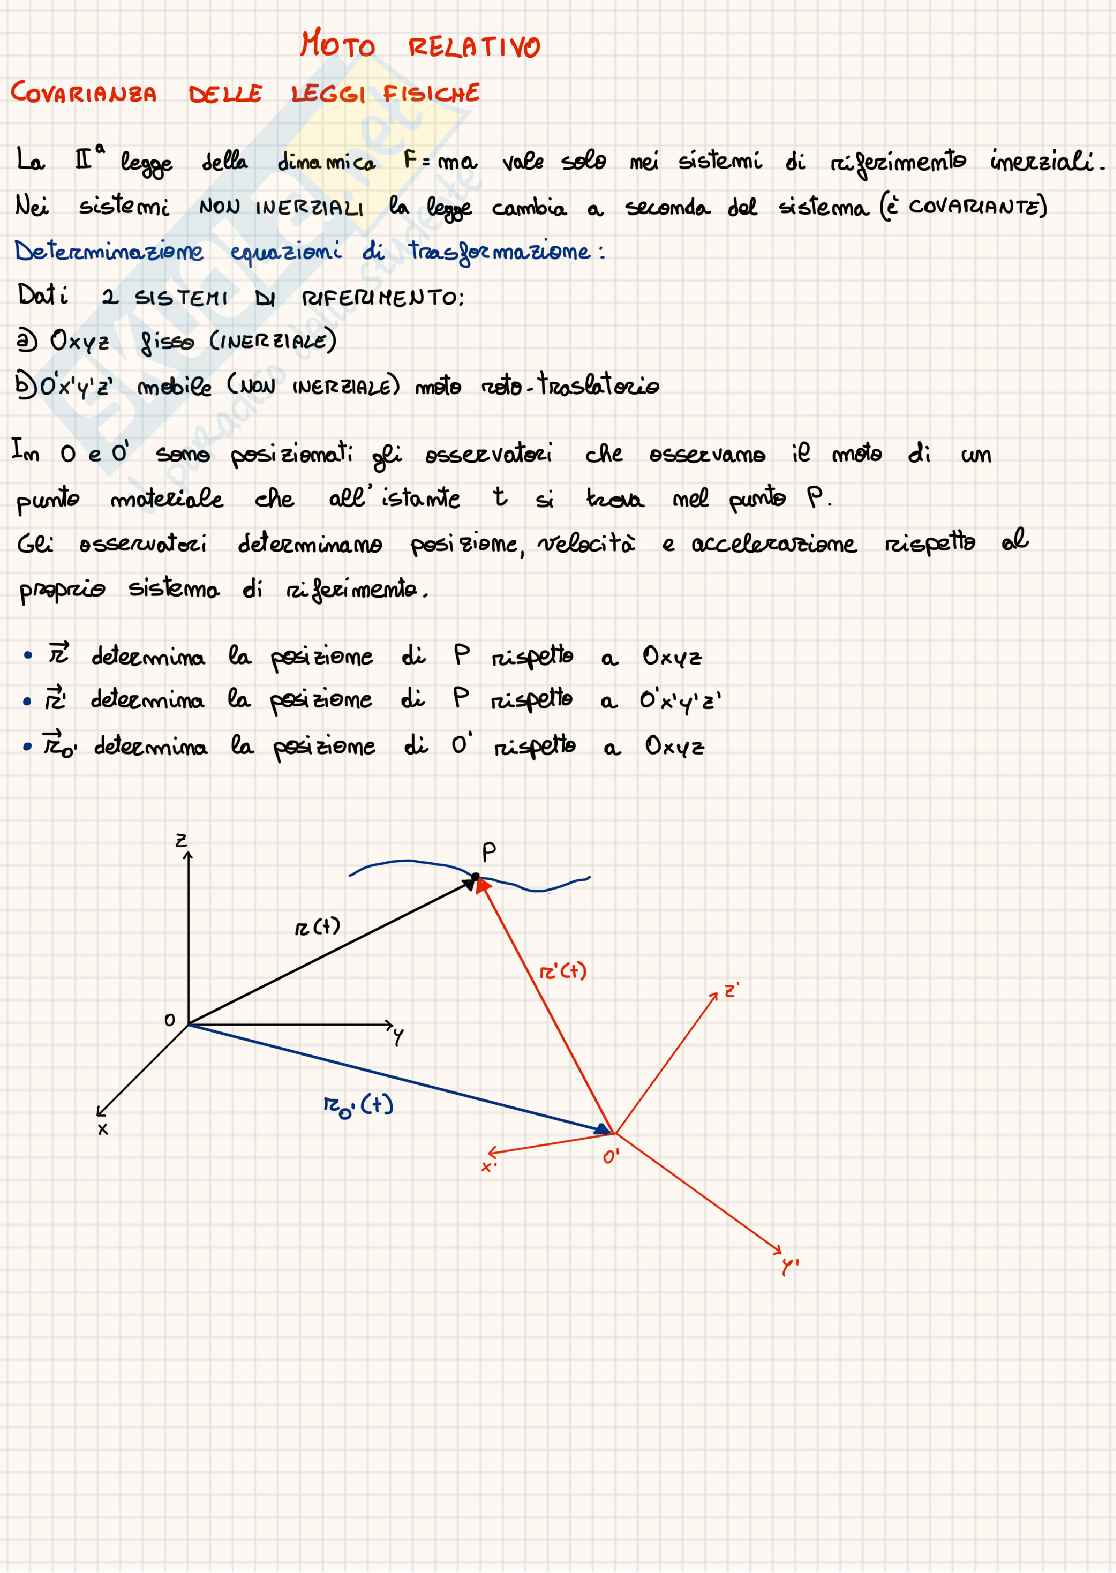 MOTO RELATIVO
COVARIANZA DELLE LEGGI FISICHE
La IIª legge della dinamica F=ma vale solo nei sistemi di riferimento inerziali.
Nei sistemi NON INERZIALI la legge cambia a seconda del sistema (è COVARIANTE)
Determinazione equazioni di trasformazione:
Dati 2 SISTEMI DI RIFERIMENTO:
a) Oxyz fisso (INERZIALE)
b) O'x'y'z' mobile (NON INERZIALE) moto roto-traslatorio
In O e O' sono posizionati gli osservatori che osservano il moto di un
punto materiale che all'istante t si trova nel punto P.
Gli osservatori determinano posizione, velocità e accelerazione rispetto al
proprio sistema di riferimento.
• r⃗ determina la posizione di P rispetto a Oxyz
• r⃗' determina la posizione di P rispetto a O'x'y'z'
• r⃗o' determina la posizione di O' rispetto a Oxyz
z
P
r(t)
r'(t)
z'
O
y
ro'(t)
x
O'
x'
y'
SKUOLA.net